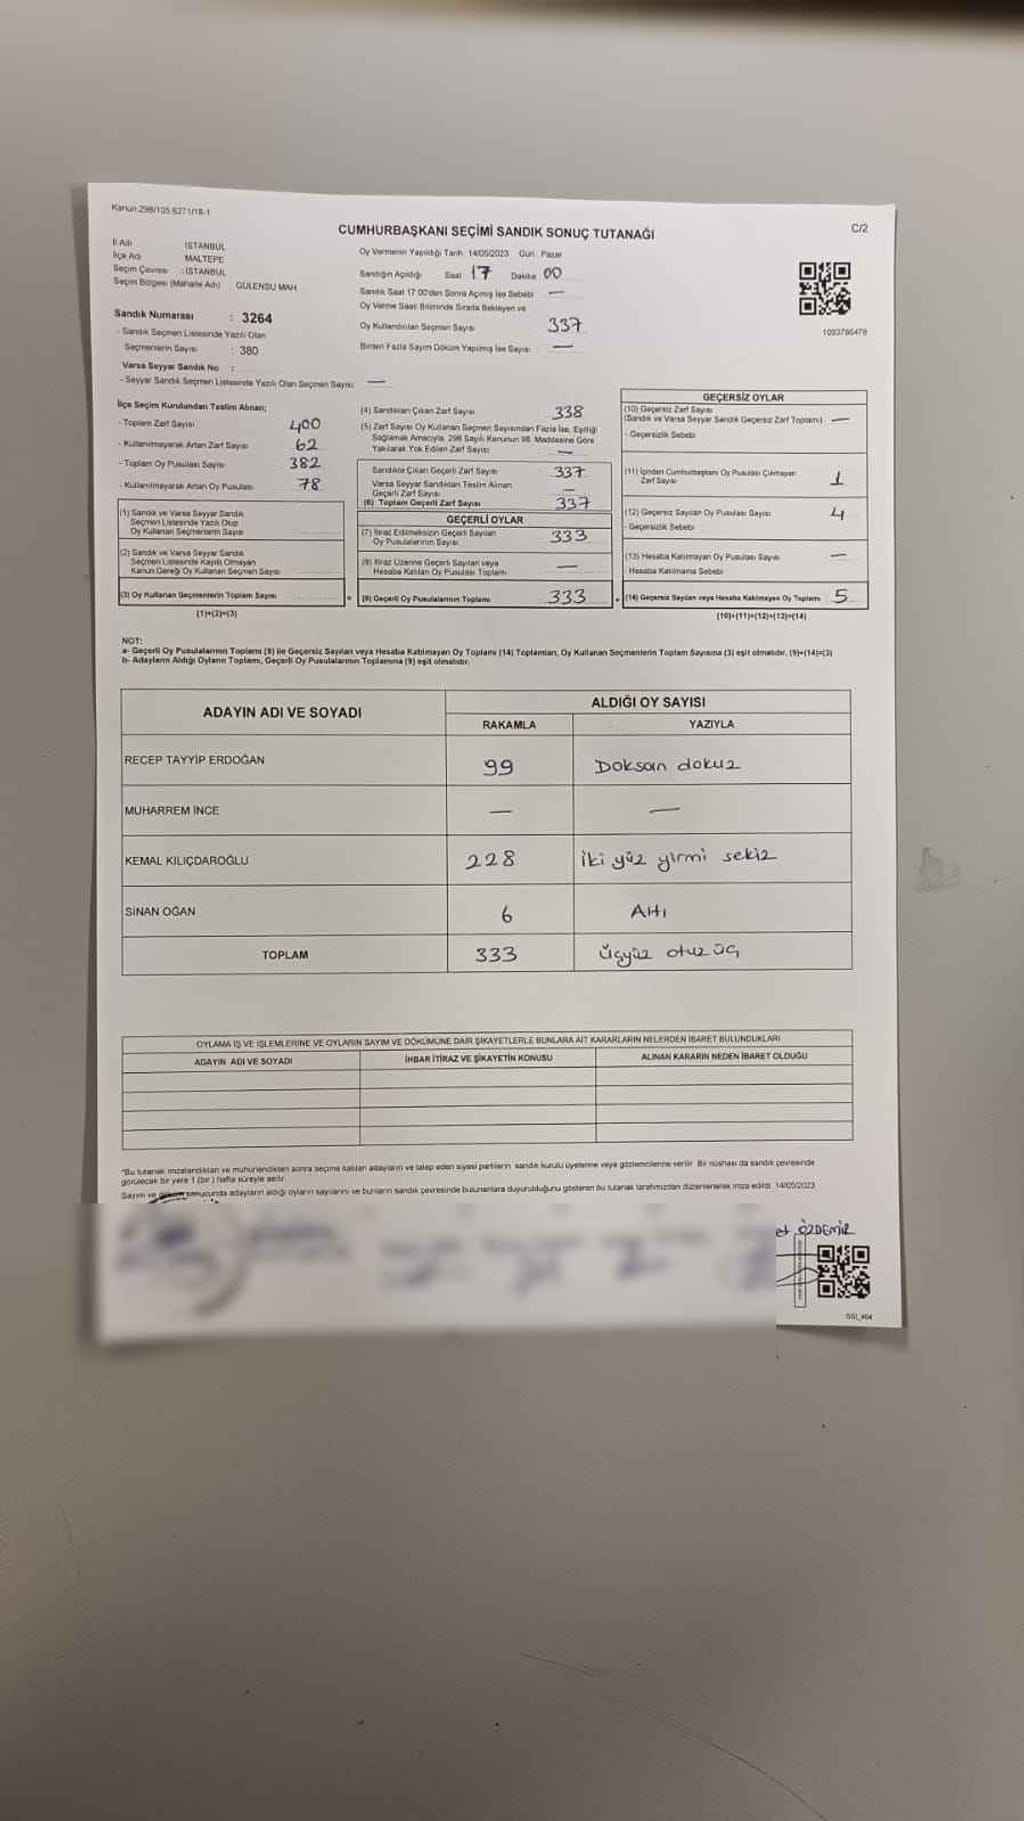 Kanun 298/105,6271/18-1
CUMHURBAŞKANI SEÇİMİ SANDIK SONUÇ TUTANAĞI
C/2
İl Adı İSTANBUL
İlçe Adı MALTEPE
Seçim Çevresi : İSTANBUL
Seçim Bölgesi (Mahalle Adı) GÜLENSU MAH
Oy Vermenin Yapıldığı Tarih: 14/05/2023 Gün: Pazar
Sandığın Açıldığı Saat 17 Dakika 00
Sandık Saat 17:00'den Sonra Açılmış İse Sebebi —
Oy Verme Saati Bitiminde Sırada Bekleyen ve
Oy Kullandırılan Seçmen Sayısı 337
Birden Fazla Sayım Döküm Yapılmış İse Sayısı : —
1093786478
Sandık Numarası : 3264
- Sandık Seçmen Listesinde Yazılı Olan
Seçmenlerin Sayısı : 380
Varsa Seyyar Sandık No :
- Seyyar Sandık Seçmen Listesinde Yazılı Olan Seçmen Sayısı —
İlçe Seçim Kurulundan Teslim Alınan;
- Toplam Zarf Sayısı 400
- Kullanılmayarak Artan Zarf Sayısı 62
- Toplam Oy Pusulası Sayısı 382
- Kullanılmayarak Artan Oy Pusulası 78
(1) Sandık ve Varsa Seyyar Sandık
Seçmen Listesinde Yazılı Olup
Oy Kullanan Seçmenlerin Sayısı
(2) Sandık ve Varsa Seyyar Sandık
Seçmen Listesinde Kayıtlı Olmayan
Kanun Gereği Oy Kullanan Seçmen Sayısı
(3) Oy Kullanan Seçmenlerin Toplam Sayısı
(1)+(2)=(3)
(4) Sandıktan Çıkan Zarf Sayısı 338
(5) Zarf Sayısı Oy Kullanan Seçmen Sayısından Fazla İse, Eşitliği
Sağlamak Amacıyla, 298 Sayılı Kanunun 98. Maddesine Göre
Yakılarak Yok Edilen Zarf Sayısı —
Sandıkta Çıkan Geçerli Zarf Sayısı 337
Varsa Seyyar Sandıktan Teslim Alınan
Geçerli Zarf Sayısı —
(6) Toplam Geçerli Zarf Sayısı 337
GEÇERLİ OYLAR
(7) İtiraz Edilmeksizin Geçerli Sayılan
Oy Pusulalarının Sayısı 333
(8) İtiraz Üzerine Geçerli Sayılan veya
Hesaba Katılan Oy Pusulası Toplamı —
= (9) Geçerli Oy Pusulalarının Toplamı 333
GEÇERSİZ OYLAR
(10) Geçersiz Zarf Sayısı
(Sandık ve Varsa Seyyar Sandık Geçersiz Zarf Toplamı) —
- Geçersizlik Sebebi
(11) İçinden Cumhurbaşkanı Oy Pusulası Çıkmayan
Zarf Sayısı 1
(12) Geçersiz Sayılan Oy Pusulası Sayısı 4
- Geçersizlik Sebebi
(13) Hesaba Katılmayan Oy Pusulası Sayısı —
- Hesaba Katılmama Sebebi
+ (14) Geçersiz Sayılan veya Hesaba Katılmayan Oy Toplamı 5
(10)+(11)+(12)+(13)=(14)
NOT:
a- Geçerli Oy Pusulalarının Toplamı (9) ile Geçersiz Sayılan veya Hesaba Katılmayan Oy Toplamı (14) Toplamları, Oy Kullanan Seçmenlerin Toplam Sayısına (3) eşit olmalıdır, (9)+(14)=(3)
b- Adayların Aldığı Oyların Toplamı, Geçerli Oy Pusulalarının Toplamına (9) eşit olmalıdır.
ADAYIN ADI VE SOYADI
ALDIĞI OY SAYISI
RAKAMLA YAZIYLA
RECEP TAYYİP ERDOĞAN 99 Doksan dokuz
MUHARREM İNCE — —
KEMAL KILIÇDAROĞLU 228 İki yüz yirmi sekiz
SİNAN OĞAN 6 Altı
TOPLAM 333 Üçyüz otuz üç
OYLAMA İŞ VE İŞLEMLERİNE VE OYLARIN SAYIM VE DÖKÜMÜNE DAİR ŞİKAYETLERLE BUNLARA AİT KARARLARIN NELERDEN İBARET BULUNDUKLARI
ADAYIN ADI VE SOYADI İHBAR İTİRAZ VE ŞİKAYETİN KONUSU ALINAN KARARIN NEDEN İBARET OLDUĞU
*Bu tutanak imzalandıktan ve mühürlendikten sonra seçime katılan adayların ve talep eden siyasi partilerin sandık kurulu üyelerine veya gözlemcilerine verilir. Bir nüshası da sandık çevresinde
görülecek bir yere 1 (bir) hafta süreyle asılır
Sayım ve döküm sonucunda adayların aldığı oyların sayılarını ve bunların sandık çevresinde bulunanlara duyurulduğunu gösteren bu tutanak tarafımızdan düzenlenerek imza edildi. 14/05/2023
et ÖZDEMİR